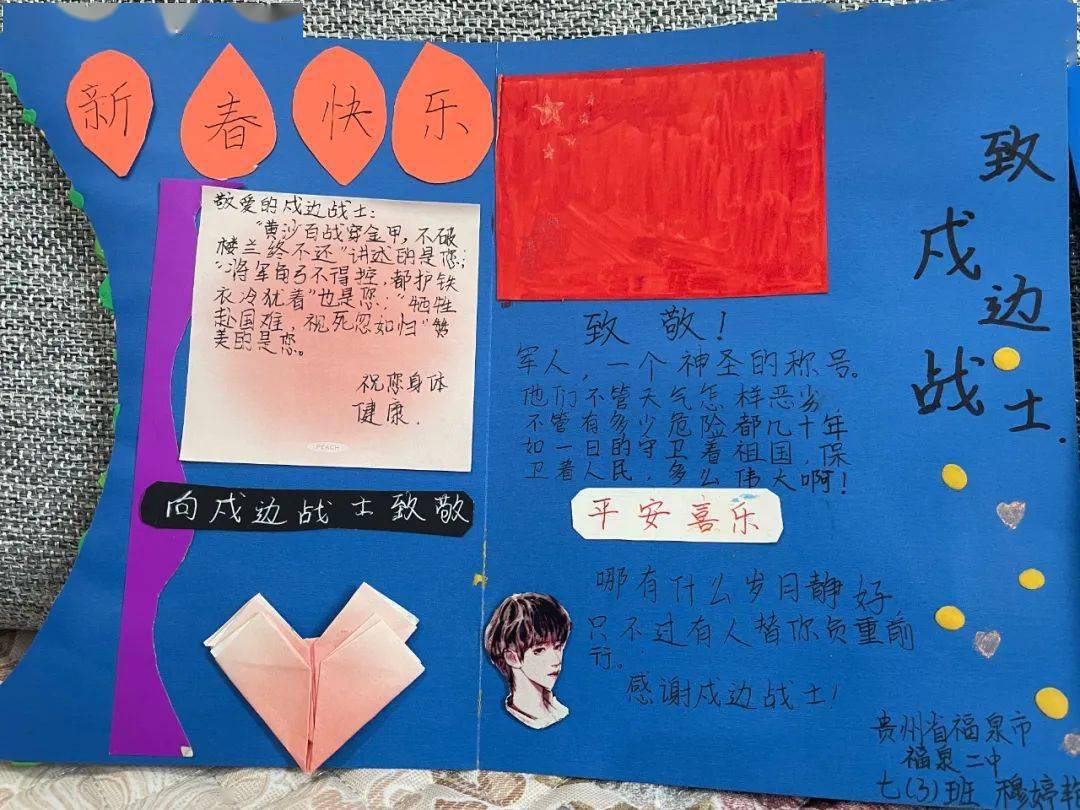 新春快乐
敬爱的戍边战士:
"黄沙百战穿金甲,不破
楼兰终不还"讲述的是您;
"将军角弓不得控,都护铁
衣冷犹着"也是您;"牺牲
赴国难,视死忽如归"赞
美的是您。
祝您身体
健康.
PEACH
向戍边战士致敬
致敬!
军人,一个神圣的称号。
他们不管天气怎样恶劣
不管有多少危险都几十年
如一日的守卫着祖国,保
卫着人民,多么伟大啊!
平安喜乐
哪有什么岁月静好,
只不过有人替你负重前
行。
感谢戍边战士!
致戍边战士.
贵州省福泉市
福泉二中
七(3)班 穆婷